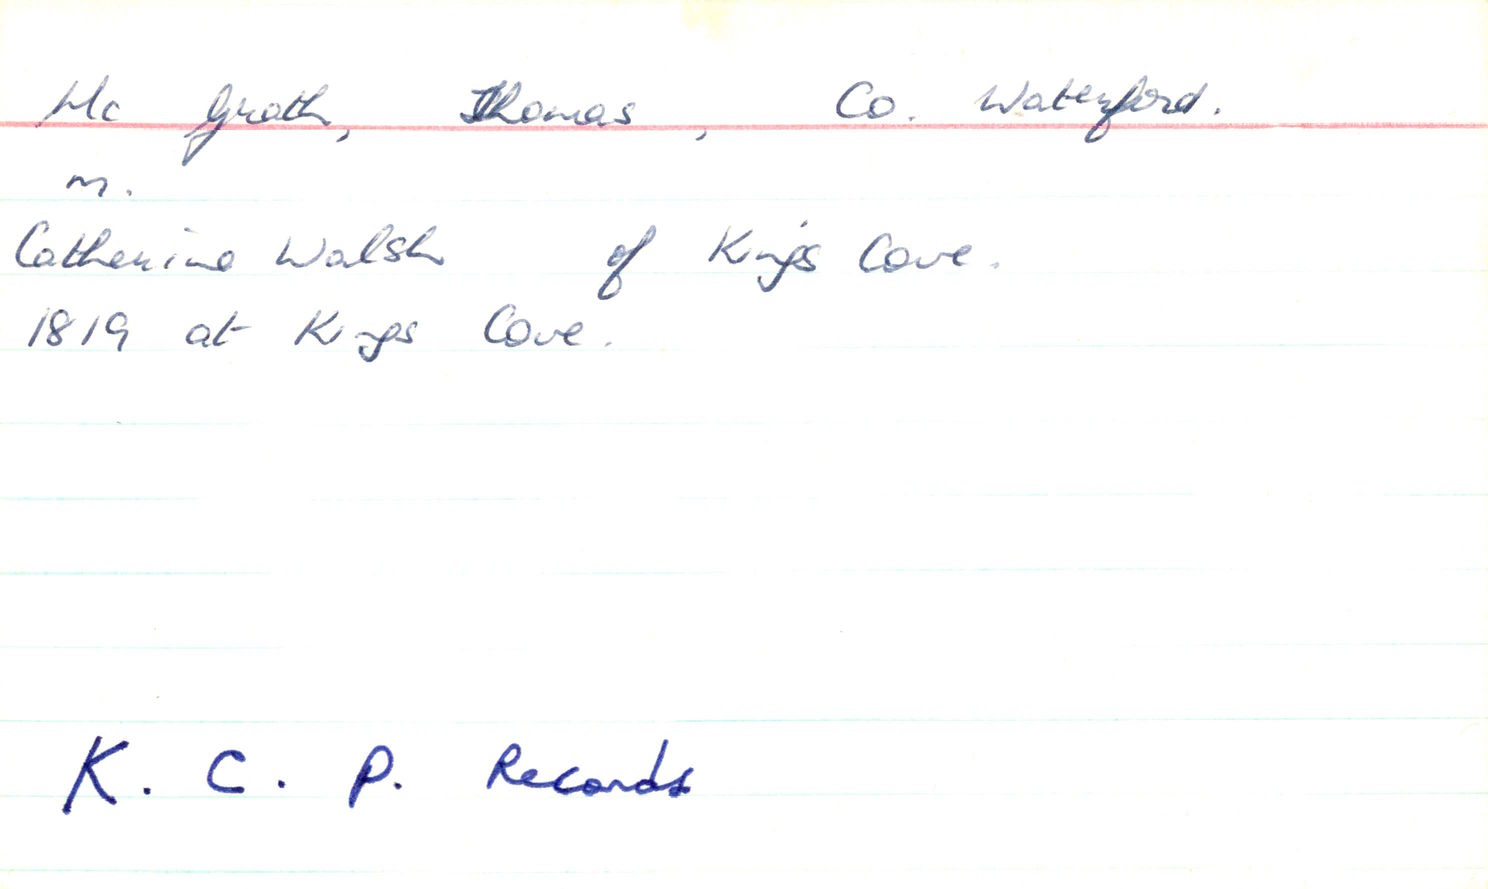 Mc Grath, Thomas, Co. Waterford.
m.
Catherine Walsh of King's Cove.
1819 at Kings Cove.
K. C. P. Records